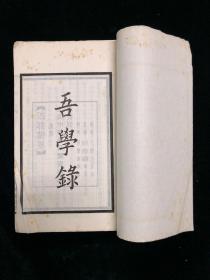 吾學錄